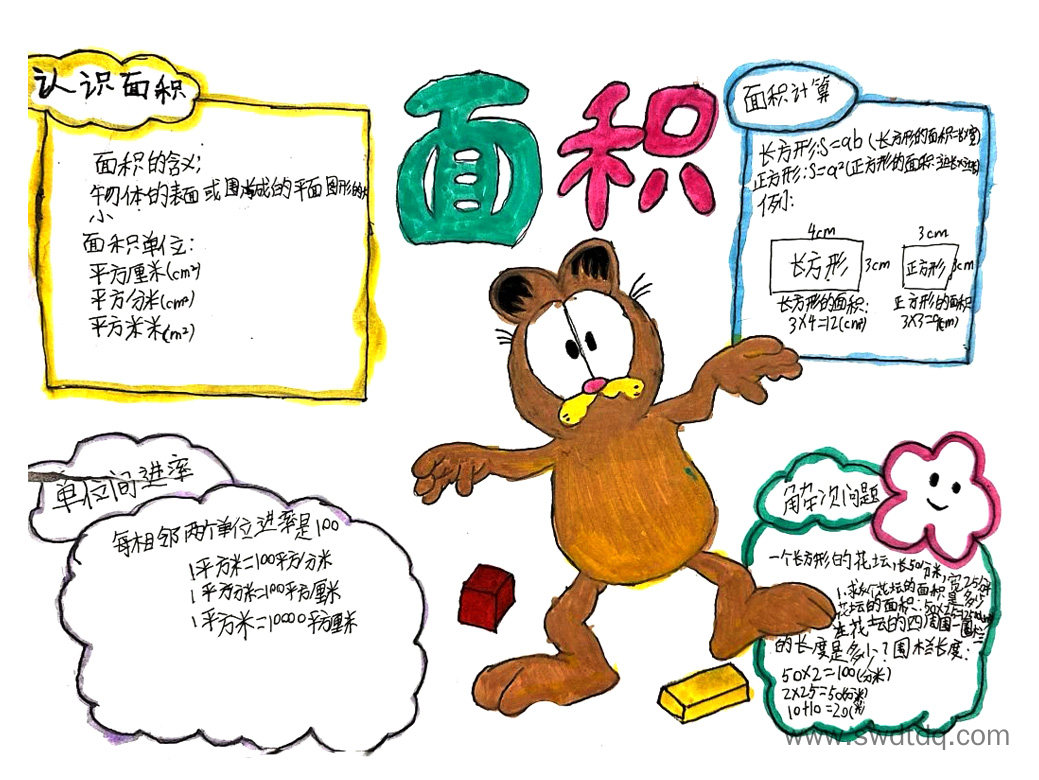 面积
认识面积
面积的含义:
物体的表面或围成的平面图形的大
小
面积单位:
平方厘米(cm²)
平方分米(cm²)
平方米米(m²)
面积计算
长方形:S=ab (长方形的面积=长×宽)
正方形:S=a²(正方形的面积=边长×边长)
例:
4cm
长方形
3cm
长方形的面积:
3×4=12(cm²)
3cm
正方形
3cm
正方形的面积
3×3=9(cm)
单位间进率
每相邻两个单位进率是100
1平方米=100平方分米
1平方分米=100平方厘米
1平方米=10000平方厘米
解决问题
一个长方形的花坛,长50分米,宽25分米
1.求花坛的面积是多少
花坛的面积:50×25=
在花坛的四周围一圈围栏
的长度是多少?围栏长度:
50×2=100(分米)
2×25=50(分米)
10+10=20(米)
www.swdtdq.com